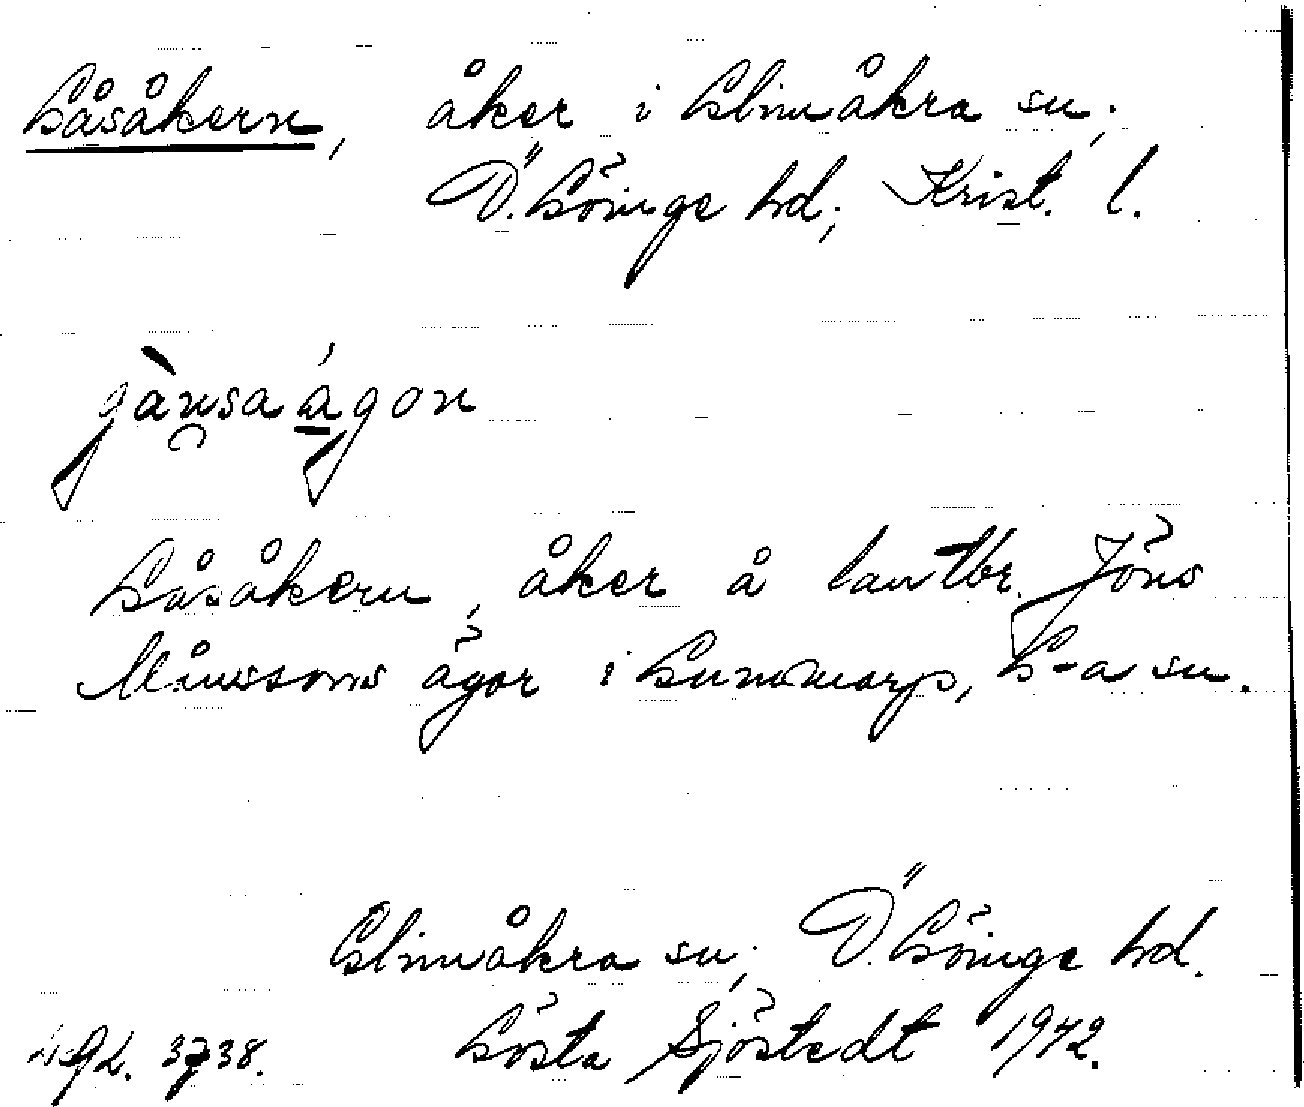 Gåsåkern, åker i Glimåkra sn,
Ö. Göinge hd, Krist. l.
gànsaágon
Gåsåkern, åker å lantbr. Jöns
Månssons ägor i Gunnmarp, G-a sn.
Glimåkra sn, Ö. Göinge hd.
3738. Gösta Sjöstedt 1942.